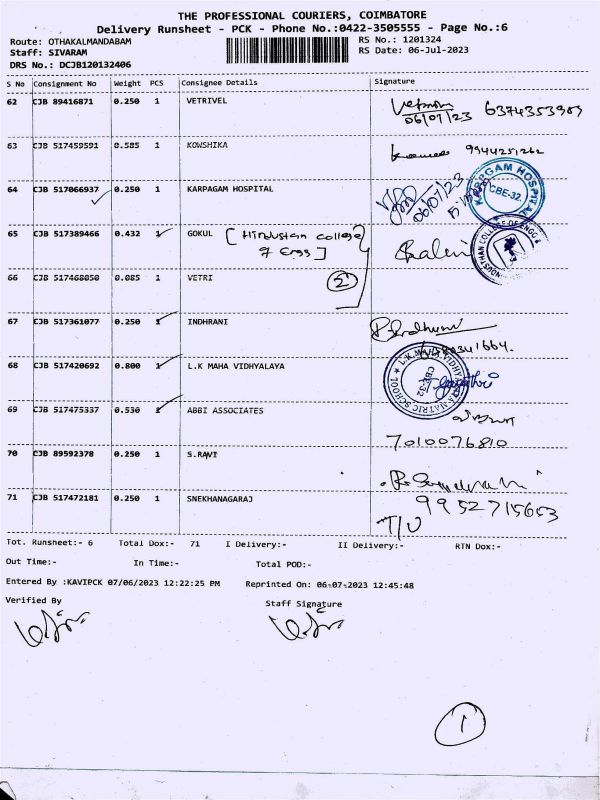 THE PROFESSIONAL COURIERS, COIMBATORE
Delivery Runsheet - PCK - Phone No.:0422-3505555 - Page No.:6
Route: OTHAKALMANDABAM RS No.: 1201324
Staff: SIVARAM RS Date: 06-Jul-2023
DRS No.: DCJB120132406
S No Consignment No Weight PCS Consignee Details Signature
62 CJB 89416871 0.250 1 VETRIVEL
06/07/23 6374353983
63 CJB 517459591 0.585 1 KOWSHIKA 9944251262
64 CJB 517066937 0.250 1 KARPAGAM HOSPITAL 06/07/23
KARPAGAM HOSPITAL CBE-32.
65 CJB 517389466 0.432 1 GOKUL [Hindustan college
of Engg]
HINDUSTHAN COLLEGE OF ENGG
66 CJB 517468050 0.085 1 VETRI 2
67 CJB 517361077 0.250 1 INDHRANI
68 CJB 517420692 0.800 1 L.K MAHA VIDHYALAYA
L.K. MAHA VIDHYALAYA MATRIC SCHOOL CBE-32
69 CJB 517475337 0.530 1 ABBI ASSOCIATES
7010076810
70 CJB 89592378 0.250 1 S.RAVI
71 CJB 517472181 0.250 1 SNEKHANAGARAJ 9952715653
T/U
Tot. Runsheet:- 6 Total Dox:- 71 I Delivery:- II Delivery:- RTN Dox:-
Out Time:- In Time:- Total POD:-
Entered By :KAVIPCK 07/06/2023 12:22:25 PM Reprinted On: 06-07-2023 12:45:48
Verified By Staff Signature
1